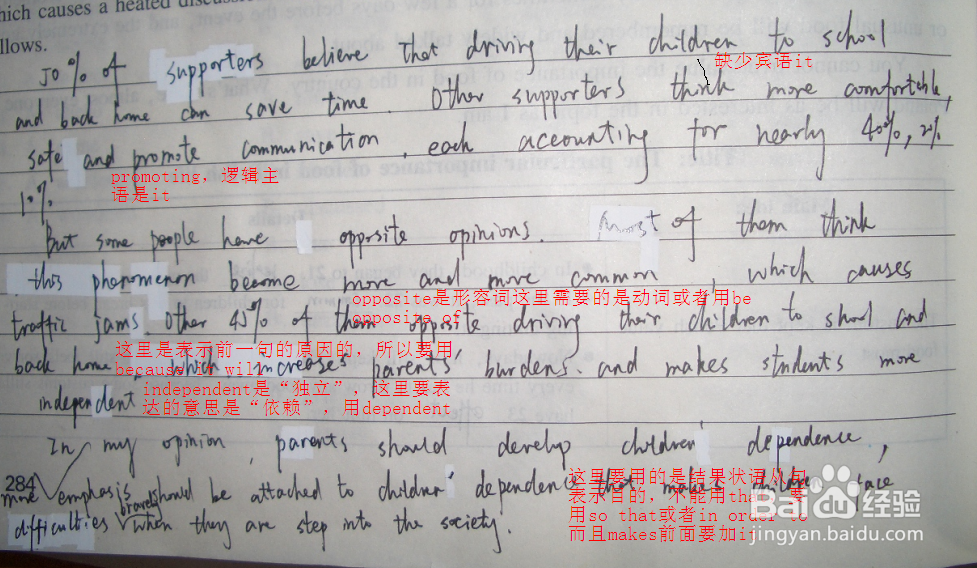 hich causes a heated discuss
llows.
50% of supporters believe that driving their children to school
缺少宾语it
and back home can save time. Other supporters think more comfortable,
safe and promote communication, each accounting for nearly 40%,
promoting, 逻辑主
语是it
10%
But some people have opposite opinions. most of them think
this phenomenon become more and more common, which causes
opposite是形容词这里需要的是动词或者用be
opposite of
traffic jams. Other 45% of them opposite driving their children to shool and
这里是表示前一句的原因的,所以要用,
because it will
back home, which increases parents' burdens. and makes students more
independent是“独立”,这里要表
达的意思是“依赖”,用dependent
independent
In my opinion, parents should develop children' dependence,
这里要用的是结果状语从句
284
more emphasis should be attached to children' dependence that makes children face
表示目的,不能用that,要
用so that或者in order to
而且makes前面要加it
bravely
difficulties when they are step into the society.
Bai 百度经验
jingyan.baidu.com